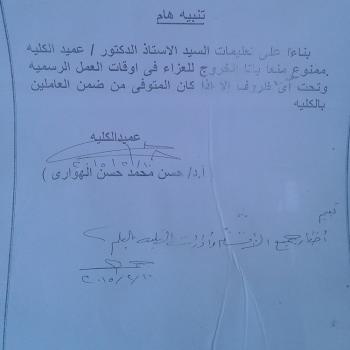 تنبيه هام
بناءا على تعليمات السيد الاستاذ الدكتور / عميد الكليه
ممنوع منعا باتا الخروج للعزاء فى اوقات العمل الرسميه
وتحت أى ظروف الا اذا كان المتوفى من ضمن العاملين
بالكليه
عميدالكليه
٢٠١٥/٢/١٠
أ.د/ حسن محمد حسن الهوارى )
يتم
أخطار جميع الأقسام وأدارات الكليه بالعلم
٢٠١٥/٢/١٠